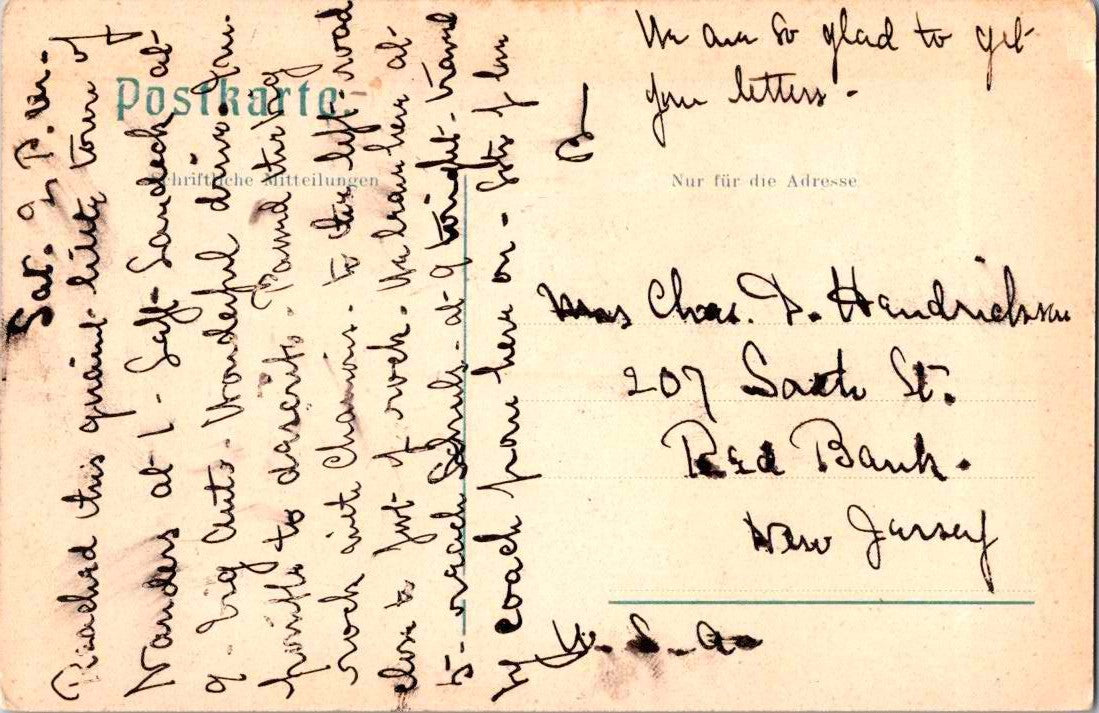 Postkarte.
Schriftliche Mitteilungen
Nur für die Adresse
We are so glad to get
your letters -
Mrs Chas. D. Hendrickson
207 South St.
Red Bank.
New Jersey
U. S. A.
Sat. 9 P.M. -
Reached this quaint little town of
Nanders at 1 - Left Landeck at
9 by auto. Wonderful drive. Im-
possible to describe. Found the big
rock with chains. to the left road
close to foot of rock. We leave here at
5 - reach Schuls - at 9 tonight. travel
by coach from here on - Lots of love